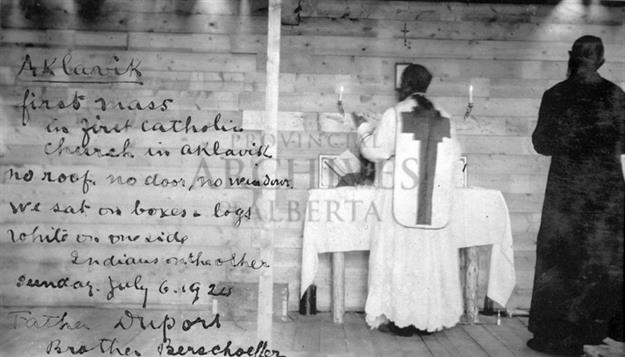 Aklavik
first mass
in first catholic
church in aklavik
no roof, no door, no windows
we sat on boxes & logs
white on one side
Indians on the other
Sunday. July 6. 192
Father Duport
Brother Berschoeffer
PROVINCIAL
ARCHIVES
OF ALBERTA